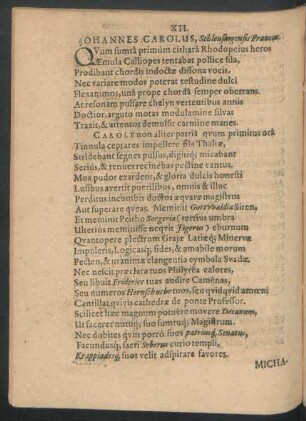 XII.
JOHANNES CAROLUS, Schleusingensis Francus.
QVum sumtâ primùm citharâ Rhodopeius heros
Æmula Calliopes tentabat pollice fila,
Prodibant chordis indoctæ dissona vocis,
Nec variare modos poterat testudine dulci
Flexanimos, unâ prope chordâ semper oberrans.
At resonam pulsare chelyn vertentibus annis
Doctior, arguto motas modulamine silvas
Traxit, & attentos demulsit carmine manes.
CAROLE non aliter patriâ qvum primitus ocâ
Tinnula ceptares impellere fila Thaliæ,
Stridebant segnes pulsus, digitiq; micabant
Seriùs, & tenues recinebas pectine cantus.
Mox pudor exardens, & gloria dulcis honesti
Lusibus avertit puerilibus, omnis & illuc
Perditus incumbis doctos æqvare magistros
Aut superare qveas. Meminit Gottvvaldia Siren,
Et meminit Peitho Sorgeria (tertius umbra
Ulterius meminisse neqvit Jägerus) eburnum
Qvantopere plectrum Grajæ Latiæq; Minervæ
Impuleris, Logicasq; fides, & amabile morum
Pecten, & uranimæ clangentia cymbala Svadæ.
Nec nescit præclara tuos Philyrêa calores,
Seu libuit Friderice tuas audire Camênas,
Seu numeros Hornschuche tuos, seu qvidqvid amœni
Cantillat qvivis cathedræ de ponte Professor.
Scilicet hæc magnum potuêre movere Decanum,
Ut succernutuq; suo sumtuq; Magistrum.
Nec dubites qvin porrò suos patriusq; Senatus,
Facundusq; sacri Seberus curio templi,
Krappiadesq; suos velit adspirare favores.
MICHA-